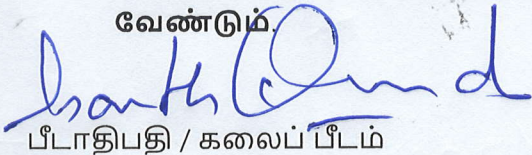 வேண்டும்.
பீடாதிபதி / கலைப் பீடம்